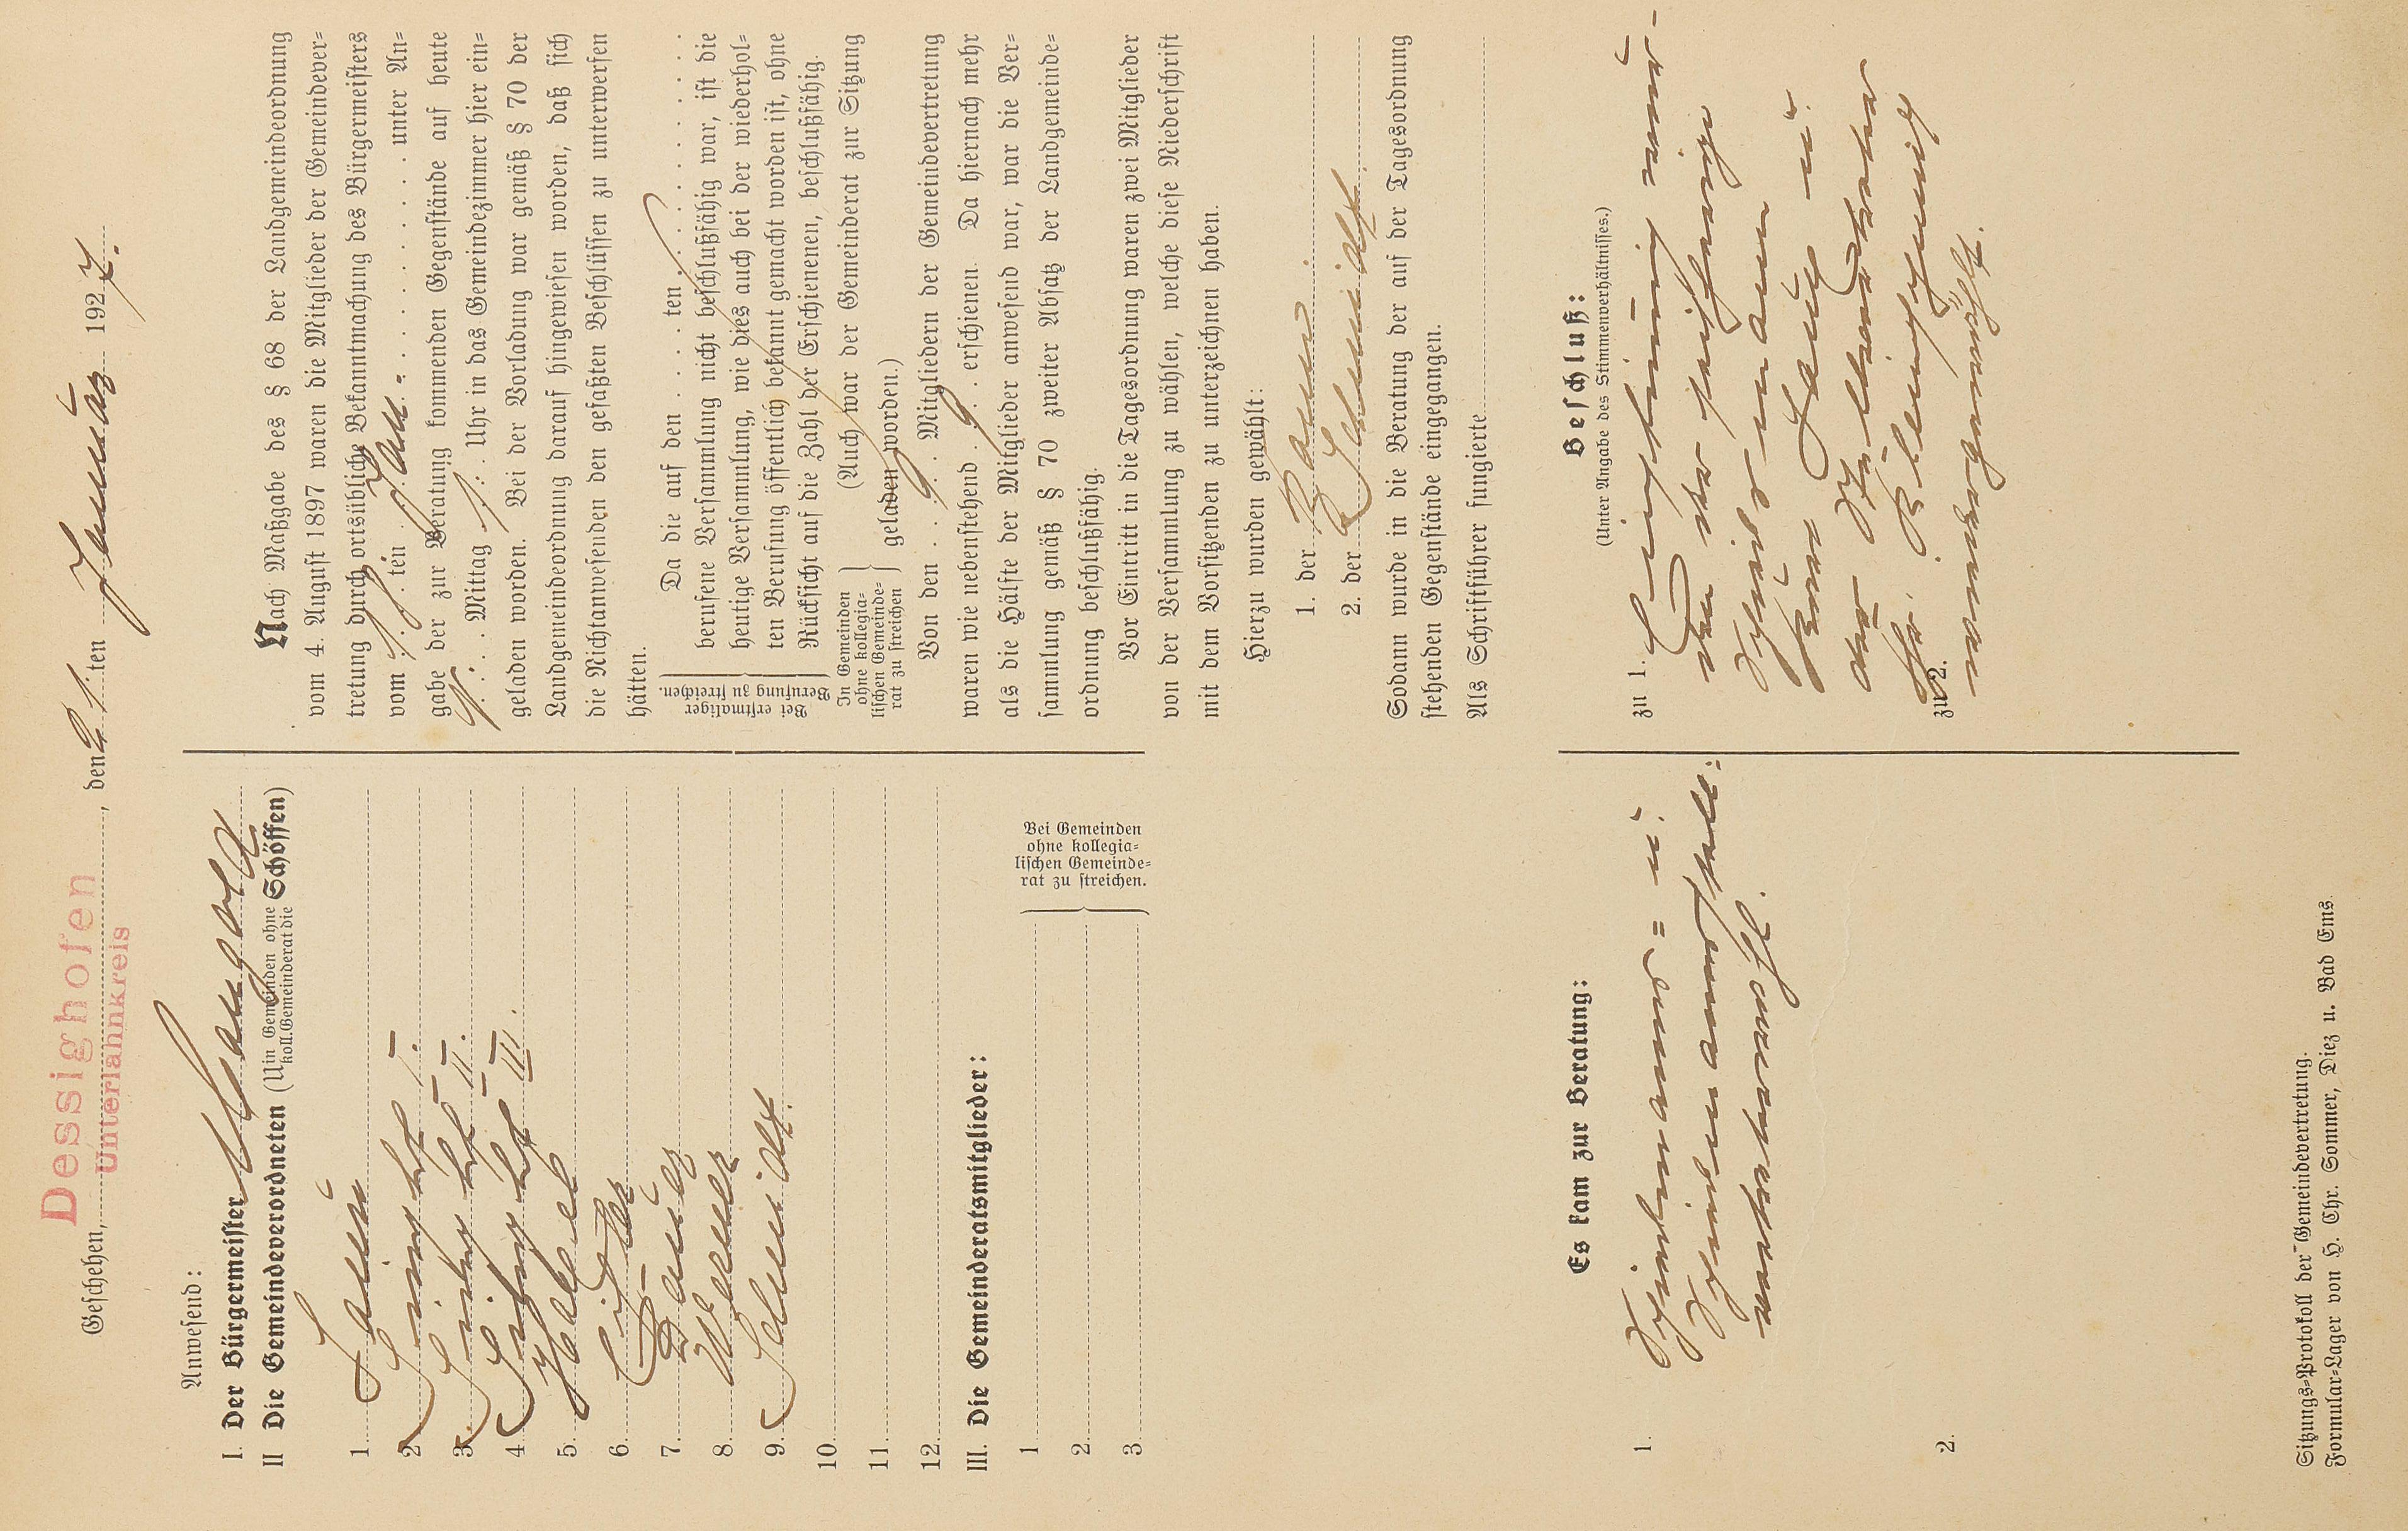 Dessighofen
Unterlahnkreis
Geschehen, den 21.ten Januar 1927.
Anwesend:
I. Der Bürgermeister Mangold
II Die Gemeindeverordneten (Uin Gemeinden ohne koll. Gemeinderat die Schöffen)
1.
2
3.
4
5.
6.
7. Bauer
8. Werner
9. Schmidt.
10.
11.
12.
III. Die Gemeinderatsmitglieder:
1
2.
3.
Bei Gemeinden
ohne kollegia-
lischen Gemeinde-
rat zu streichen.
Nach Maßgabe des § 68 der Landgemeindeordnung
vom 4. August 1897 waren die Mitglieder der Gemeindever-
tretung durch ortsübliche Bekanntmachung des Bürgermeisters
vom ten Jan. unter An-
gabe der zur Beratung kommenden Gegenstände auf heute
Mittag Uhr in das Gemeindezimmer hier ein-
geladen worden. Bei der Vorladung war gemäß § 70 der
Landgemeindeordnung darauf hingewiesen worden, daß sich
die Nichtanwesenden den gefaßten Beschlüssen zu unterwerfen
hätten.
Bei erstmaliger
Berufung zu streichen.
Da die auf den . . . . ten . . . . . . . . . .
berufene Versammlung nicht beschlußfähig war, ist die
heutige Versammlung, wie dies auch bei der wiederhol-
ten Berufung öffentlich bekannt gemacht worden ist, ohne
Rücksicht auf die Zahl der Erschienenen, beschlußfähig.
In Gemeinden
ohne kollegia-
lischen Gemeinde-
rat zu streichen
(Auch war der Gemeinderat zur Sitzung
geladen worden.)
Von den . . 9. . Mitgliedern der Gemeindevertretung
waren wie nebenstehend . 9. . erschienen. Da hiernach mehr
als die Hälfte der Mitglieder anwesend war, war die Ver-
sammlung gemäß § 70 zweiter Absatz der Landgemeinde-
ordnung beschlußfähig.
Vor Eintritt in die Tagesordnung waren zwei Mitglieder
von der Versammlung zu wählen, welche diese Niederschrift
mit dem Vorsitzenden zu unterzeichnen haben.
Hierzu wurden gewählt:
1. der
2. der Schmidt.
Sodann wurde in die Beratung der auf der Tagesordnung
stehenden Gegenstände eingegangen.
Als Schriftführer fungierte
Es kam zur Beratung:
1. Schiedsmanns= u.
Schiedsmannsstell=
vertreterwahl.
2.
Beschluß:
(Unter Angabe des Stimmenverhältnisses.)
zu 1. Einstimmig wur-
den der seitherige
Schiedsmann
u.
der Stellvertreter
zu 2.
wiedergewählt.
Sitzungs-Protokoll der Gemeindevertretung.
Formular-Lager von H. Chr. Sommer, Diez u. Bad Ems.